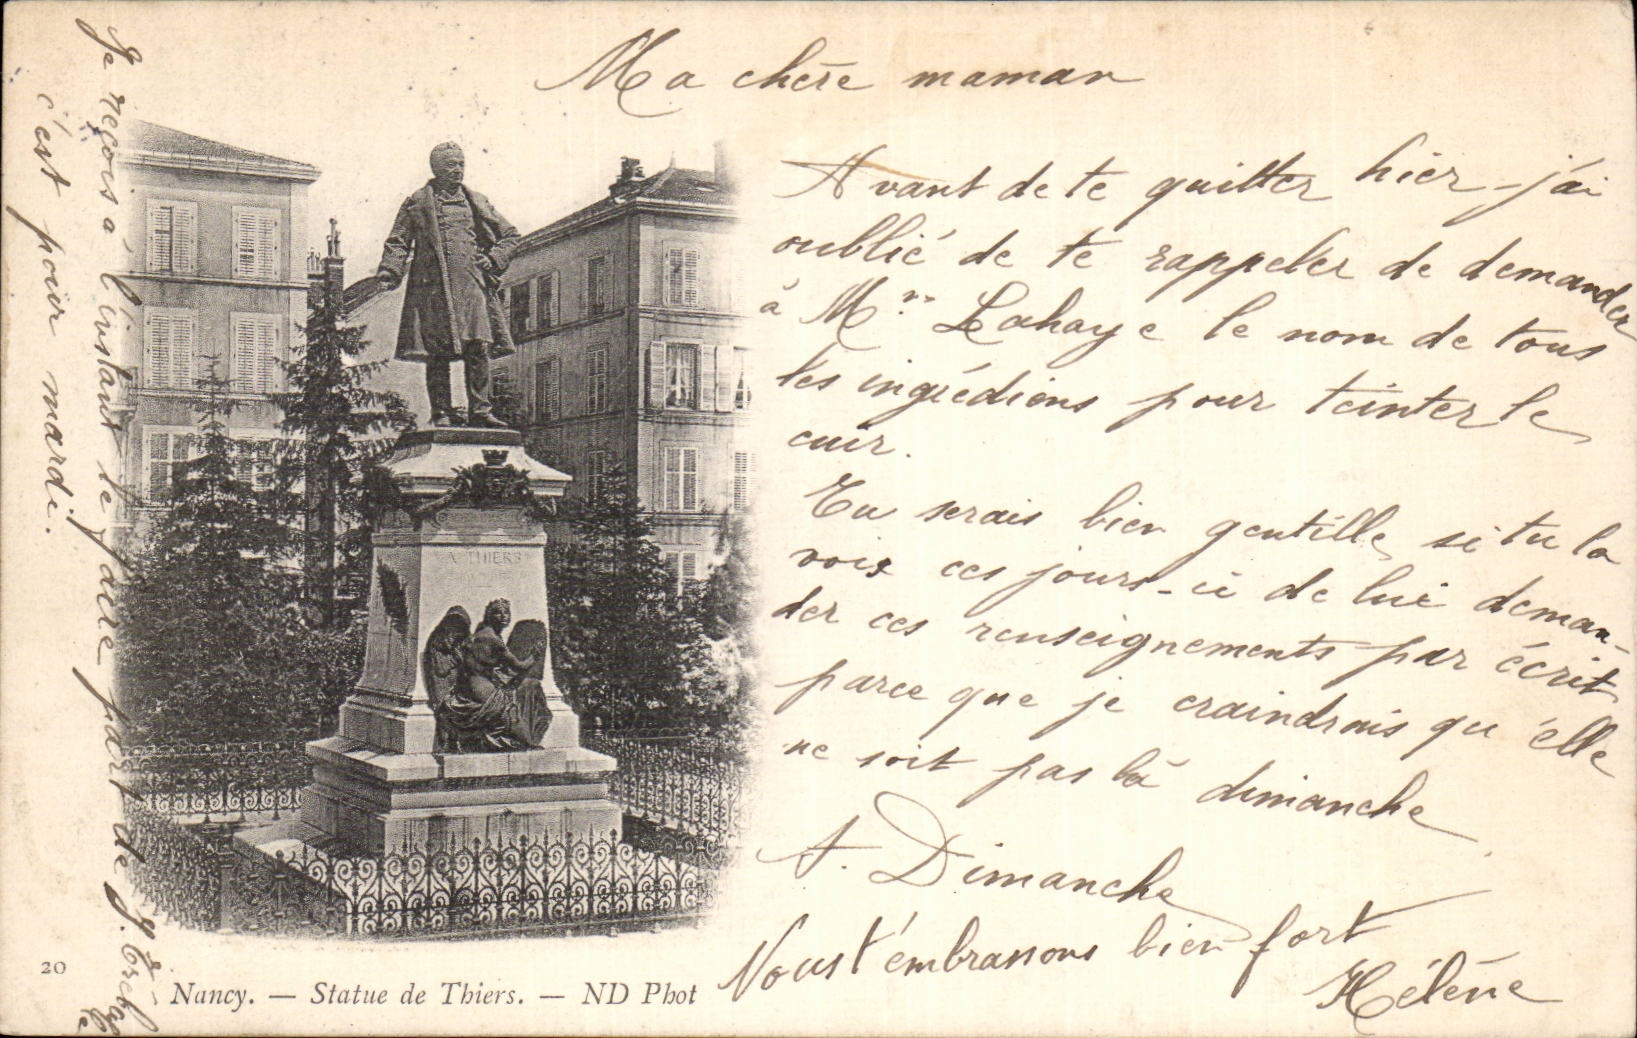 Ma chère maman
Avant de te quitter hier j'ai
oublié de te rappeler de demander
à Mme Lahaye le nom de tous
les ingrédiens pour teinter le
cuir.
Tu serais bien gentille si tu la
vois ces jours-ci de lui deman-
der ces renseignements par écrit
parce que je craindrais qu'elle
ne soit pas là dimanche
A. Dimanche
Nous t'embrassons bien fort
Hélène
Je reçois à l'instant le part de
c'est pour mardi.
A THIERS
20
Nancy. — Statue de Thiers. — ND Phot